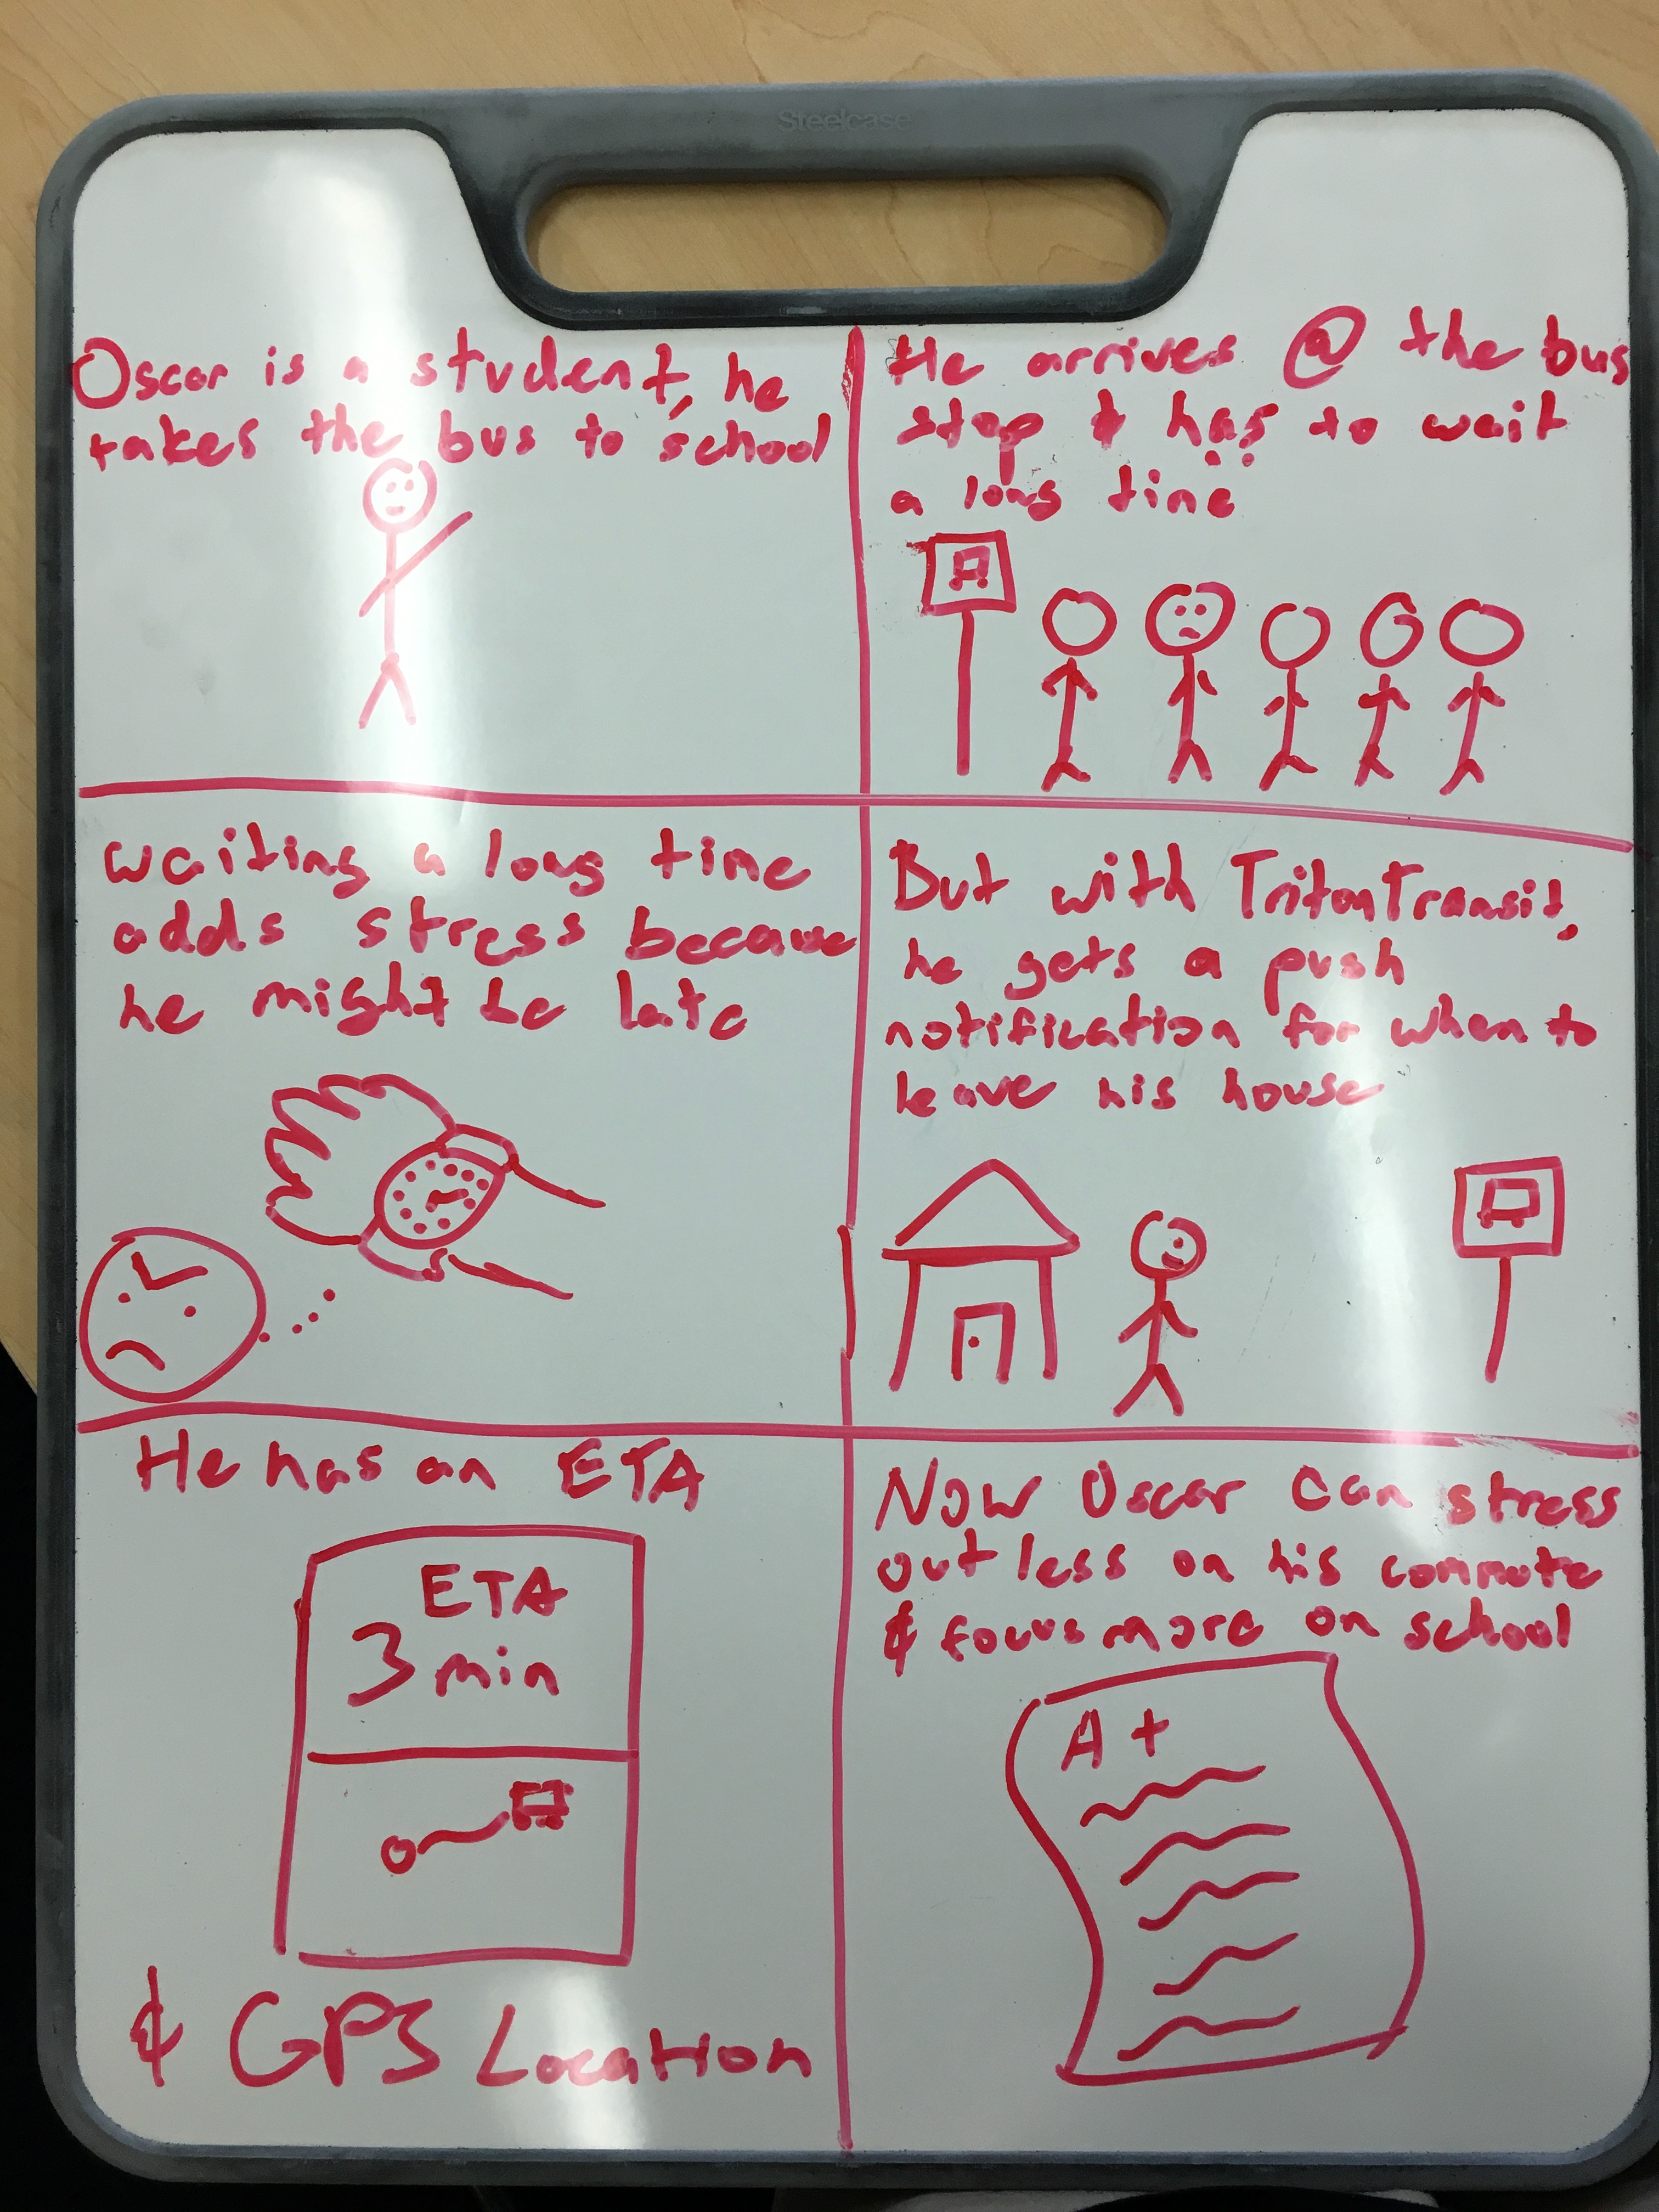 Steelcase
Oscar is a student, he
takes the bus to school
He arrives @ the bus
stop & has to wait
a long time
waiting a long time
adds stress because
he might be late
But with TritonTransit,
he gets a push
notification for when to
leave his house
He has an ETA
ETA
3 min
& GPS Location
Now Oscar can stress
out less on his commute
& focus more on school
A+